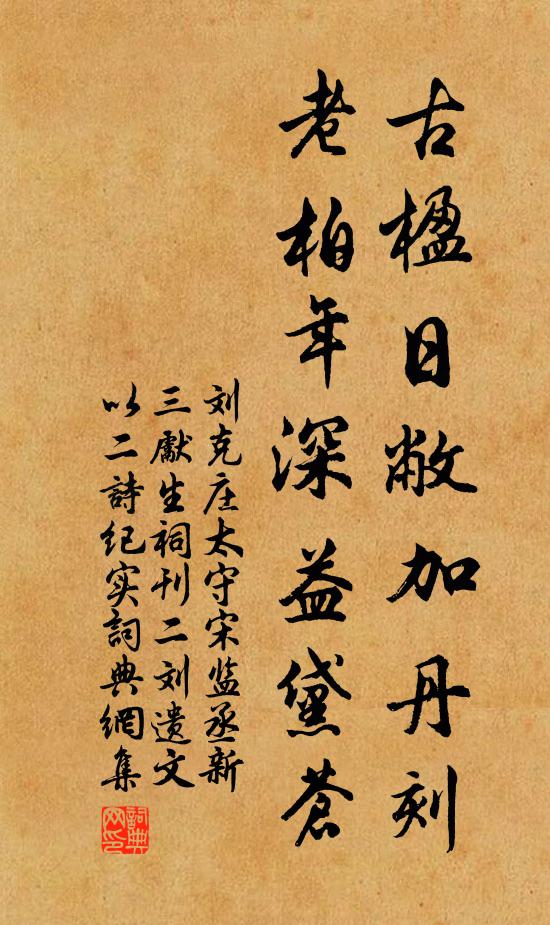 古楹日敝加丹刻
老柏年深益黛蒼
刘克庄太守宋监丞新
三獻生祠刊二刘遗文
以二詩纪实詞典網集
詞典
网印